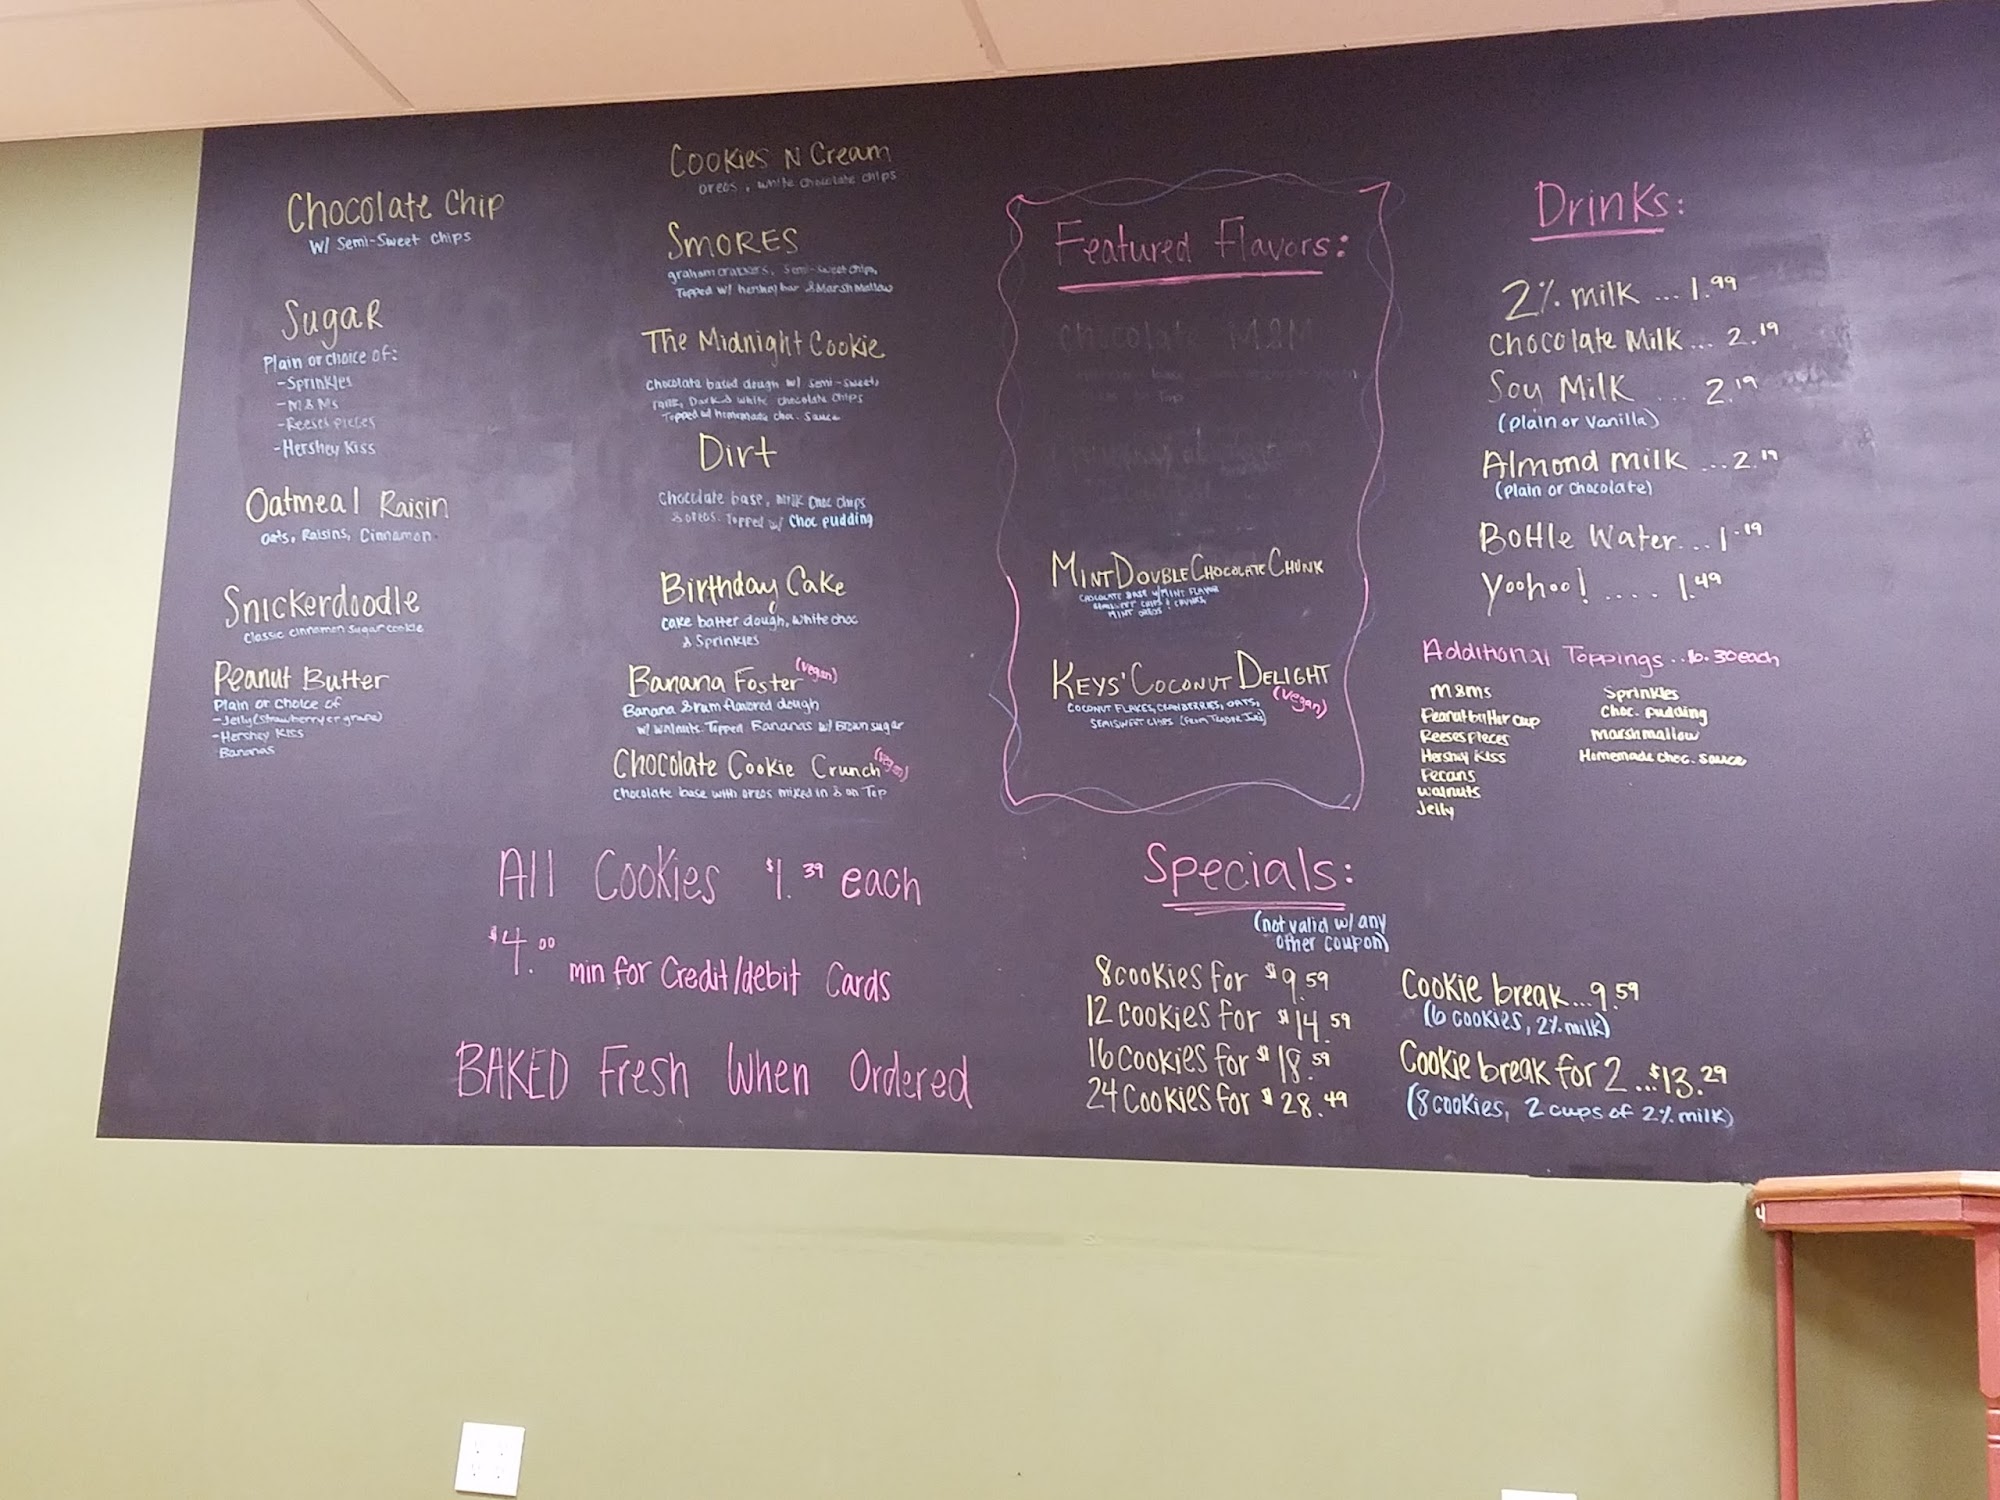 Chocolate Chip
w/ Semi-Sweet Chips
Sugar
Plain or choice of:
-Sprinkles
-M&Ms
-Reeses Pieces
-Hershey Kiss
Oatmeal Raisin
Oats, Raisins, Cinnamon
Snickerdoodle
Classic cinnamon sugar cookie
Peanut Butter
Plain or choice of
-Jelly (strawberry or grape)
-Hershey Kiss
Bananas
Cookies N Cream
oreos, white chocolate chips
Smores
graham crackers, Semi-sweet chips,
Topped w/ hershey bar & Marshmallow
The Midnight Cookie
Chocolate based dough w/ semi-sweet,
milk, Dark & white chocolate chips
Topped w/ homemade choc. sauce
Dirt
Chocolate base, milk choc chips
& oreos. Topped w/ choc pudding
Birthday Cake
cake batter dough, white choc
& Sprinkles
Banana Foster (vegan)
Banana & rum flavored dough
w/ walnuts. Topped Bananas w/ Brown sugar
Chocolate Cookie Crunch (vegan)
Chocolate base with oreos mixed in & on Top
All Cookies $1.39 each
$4.00 min for Credit/debit Cards
BAKED Fresh When Ordered
Featured Flavors:
Chocolate M&M
Mint Double Chocolate Chunk
Chocolate base w/ mint flavor
semisweet chips &
mint oreos
Keys' Coconut Delight
(vegan)
Coconut flakes, cranberries, oats,
semisweet chips (from Trader Joe's)
Drinks:
2% milk ... 1.99
Chocolate Milk ... 2.19
Soy Milk ... 2.19
(Plain or Vanilla)
Almond milk ... 2.19
(Plain or Chocolate)
Bottle Water ... 1.19
Yoohoo! .... 1.49
Additional Toppings .. $0.30 each
M&Ms
Peanut butter cup
Reeses Pieces
Hershey Kiss
Pecans
walnuts
Jelly
Sprinkles
Choc. pudding
Marshmallow
Homemade choc. sauce
Specials:
(not valid w/ any
other coupon)
8 cookies for $9.59
12 cookies for $14.59
16 cookies for $18.59
24 cookies for $28.49
Cookie break ... 9.59
(6 cookies, 2% milk)
Cookie break for 2 ... $13.29
(8 cookies, 2 cups of 2% milk)